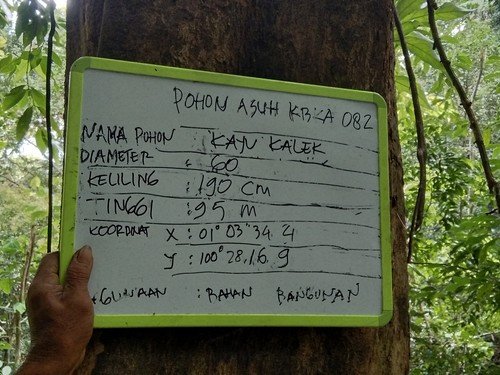 POHON ASUH KBKA 082
NAMA POHON : KAYU KALEK
DIAMETER : 60
KELILING : 190 cm
TINGGI : 95 m
KOORDINAT X : 01° 03" 34. 4
Y : 100° 28.16. 9
GUNAAN : BAHAN BANGUNAN